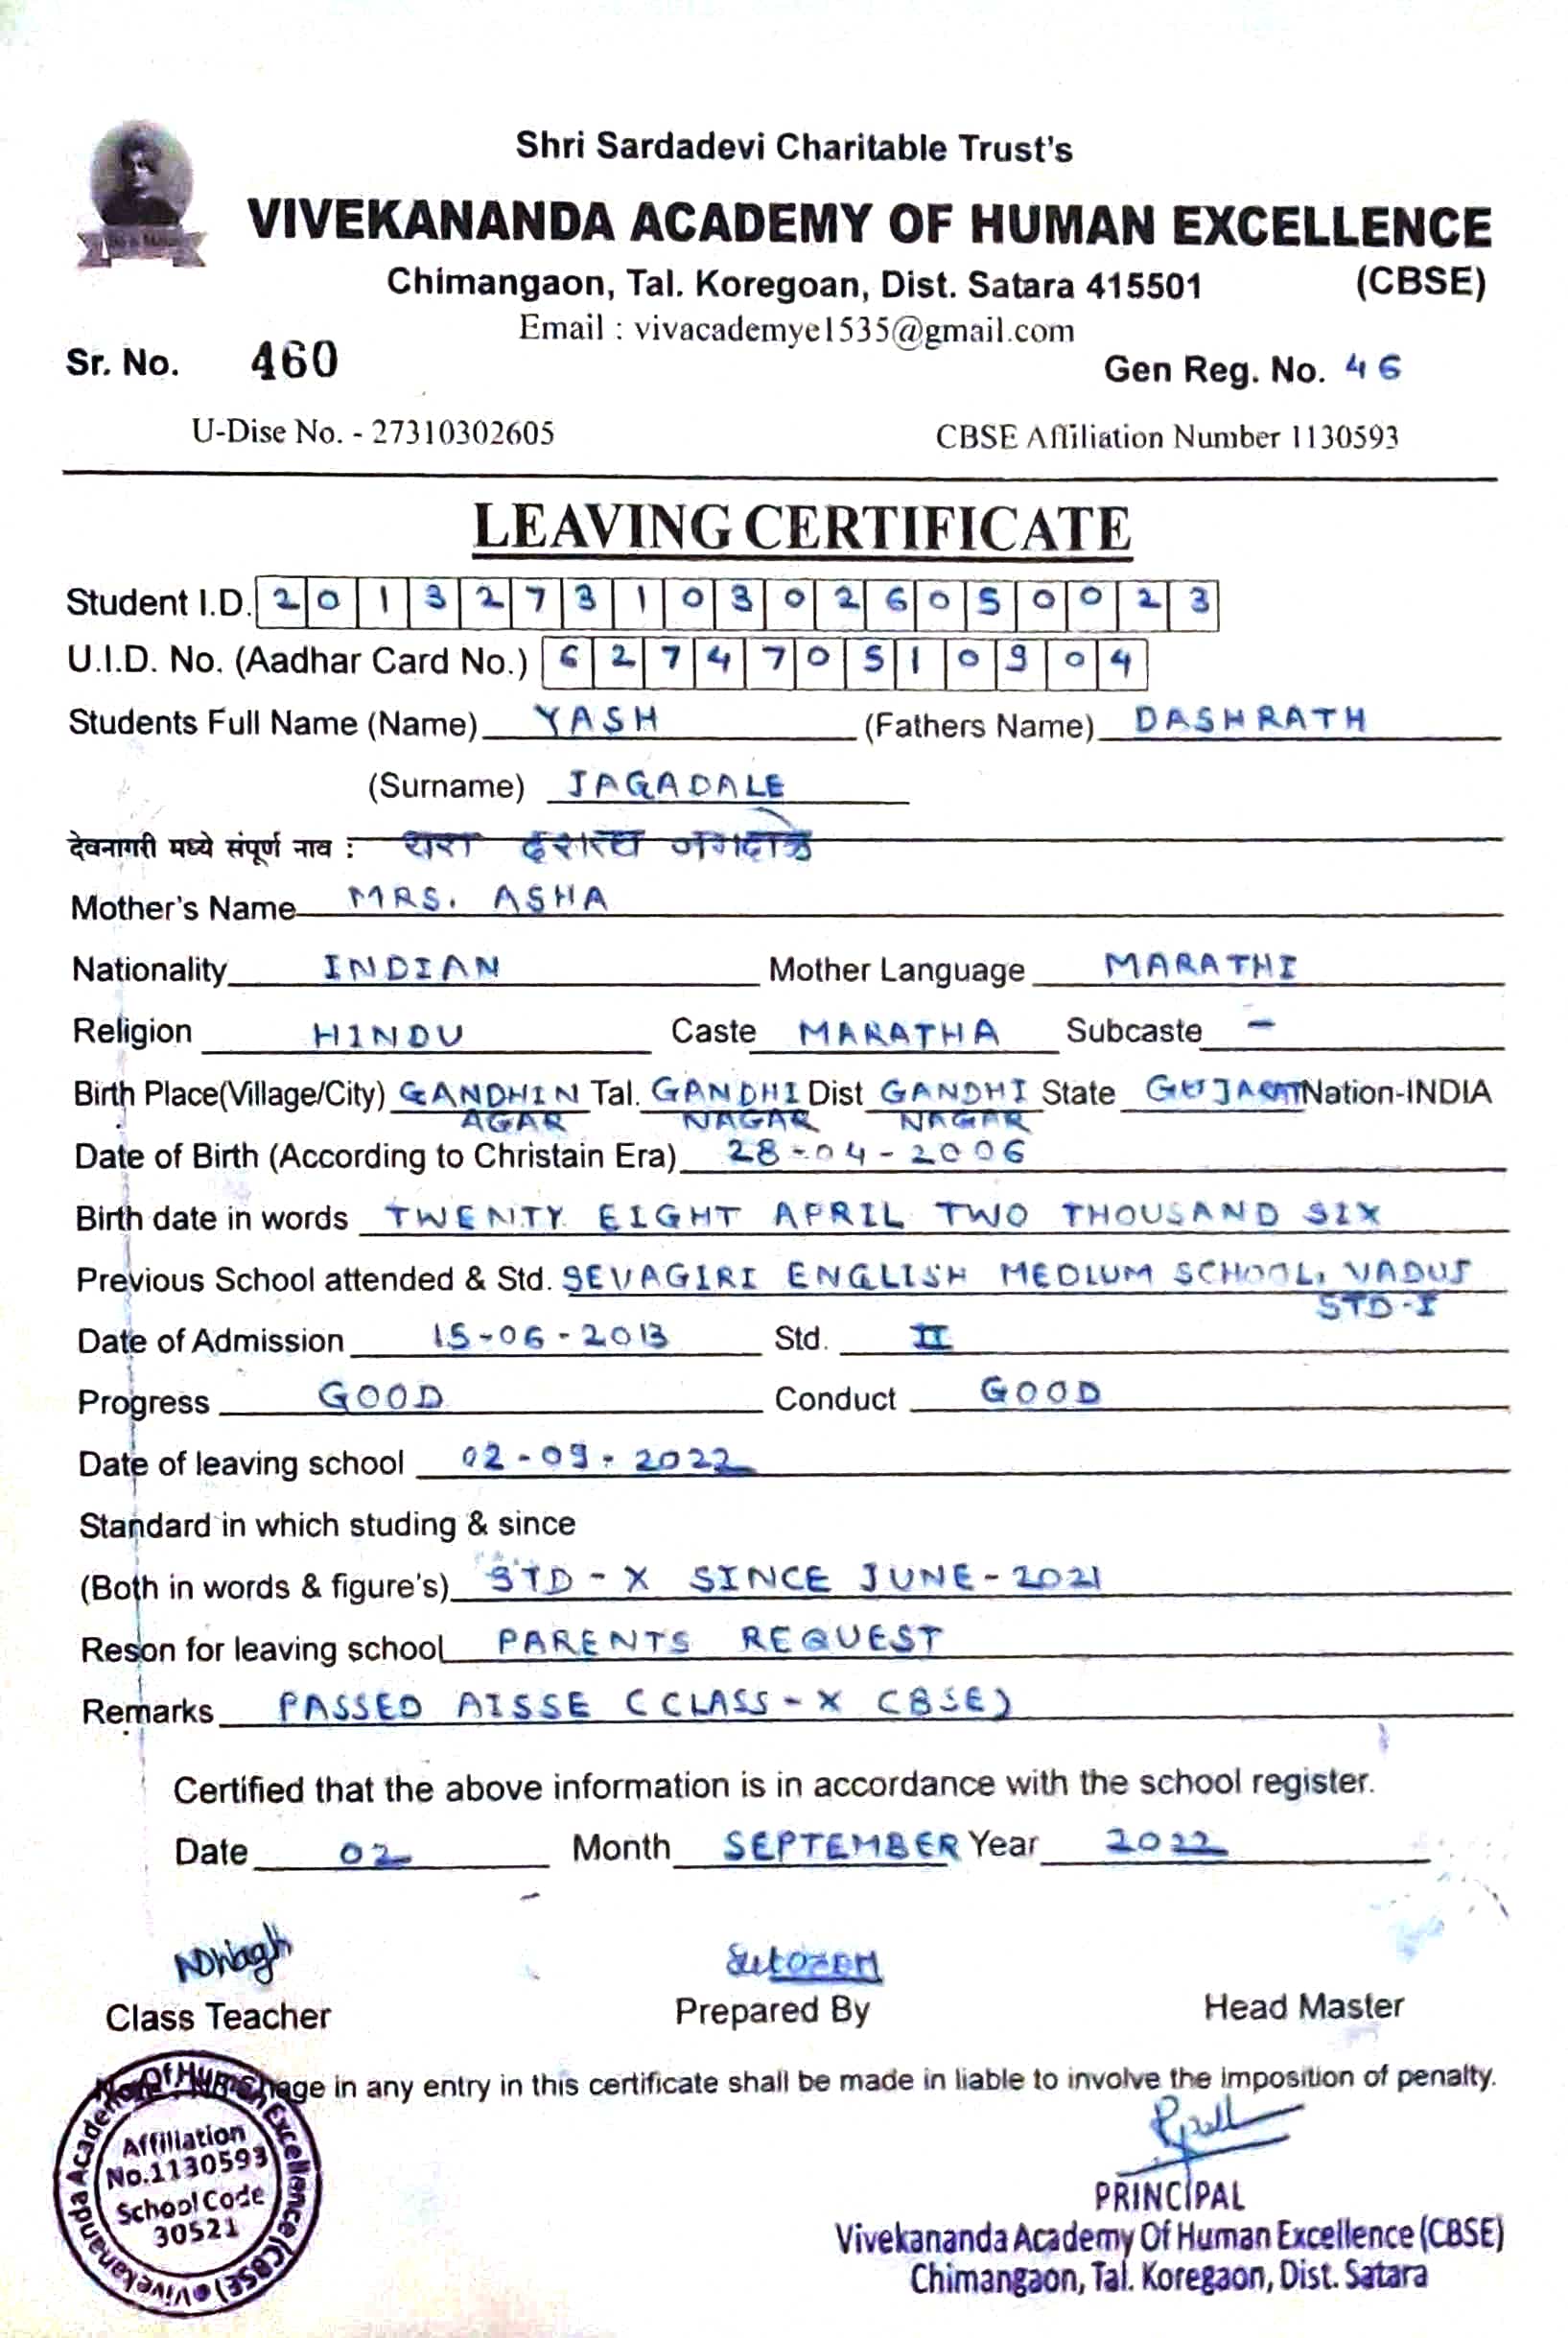 Shri Sardadevi Charitable Trust's
VIVEKANANDA ACADEMY OF HUMAN EXCELLENCE
Chimangaon, Tal. Koregoan, Dist. Satara 415501 (CBSE)
Email : vivacademye1535@gmail.com
Sr. No. 460 Gen Reg. No. 46
U-Dise No. - 27310302605 CBSE Affiliation Number 1130593
LEAVING CERTIFICATE
Student I.D. 2013273103026050023
U.I.D. No. (Aadhar Card No.) 627470510904
Students Full Name (Name) YASH (Fathers Name) DASHRATH
(Surname) JAGADALE
देवनागरी मध्ये संपूर्ण नाव : यश दशरथ जगदाळे
Mother's Name MRS. ASHA
Nationality INDIAN Mother Language MARATHI
Religion HINDU Caste MARATHA Subcaste -
Birth Place(Village/City) GANDHIN Tal. GANDHI Dist GANDHI State GUJARAT Nation-INDIA
AGAR NAGAR NAGAR
Date of Birth (According to Christain Era) 28-04-2006
Birth date in words TWENTY EIGHT APRIL TWO THOUSAND SIX
Previous School attended & Std. SEVAGIRI ENGLISH MEDIUM SCHOOL, VADUJ
STD-I
Date of Admission 15-06-2013 Std. II
Progress GOOD Conduct GOOD
Date of leaving school 02-09-2022
Standard in which studing & since
(Both in words & figure's) STD-X SINCE JUNE-2021
Reson for leaving school PARENTS REQUEST
Remarks PASSED AISSE (CLASS-X CBSE)
Certified that the above information is in accordance with the school register.
Date 02 Month SEPTEMBER Year 2022
NDWagh
Class Teacher Prepared By Head Master
hage in any entry in this certificate shall be made in liable to involve the imposition of penalty.
Vivekananda Academy Of Human Excellence (CBSE)
Affiliation
No.1130593
School Code
30521
PRINCIPAL
Vivekananda Academy Of Human Excellence (CBSE)
Chimangaon, Tal. Koregaon, Dist. Satara